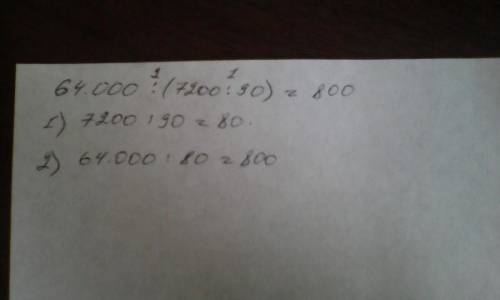 64.000 : (7200 : 90) = 800
1) 7200 : 90 = 80.
2) 64.000 : 80 = 800